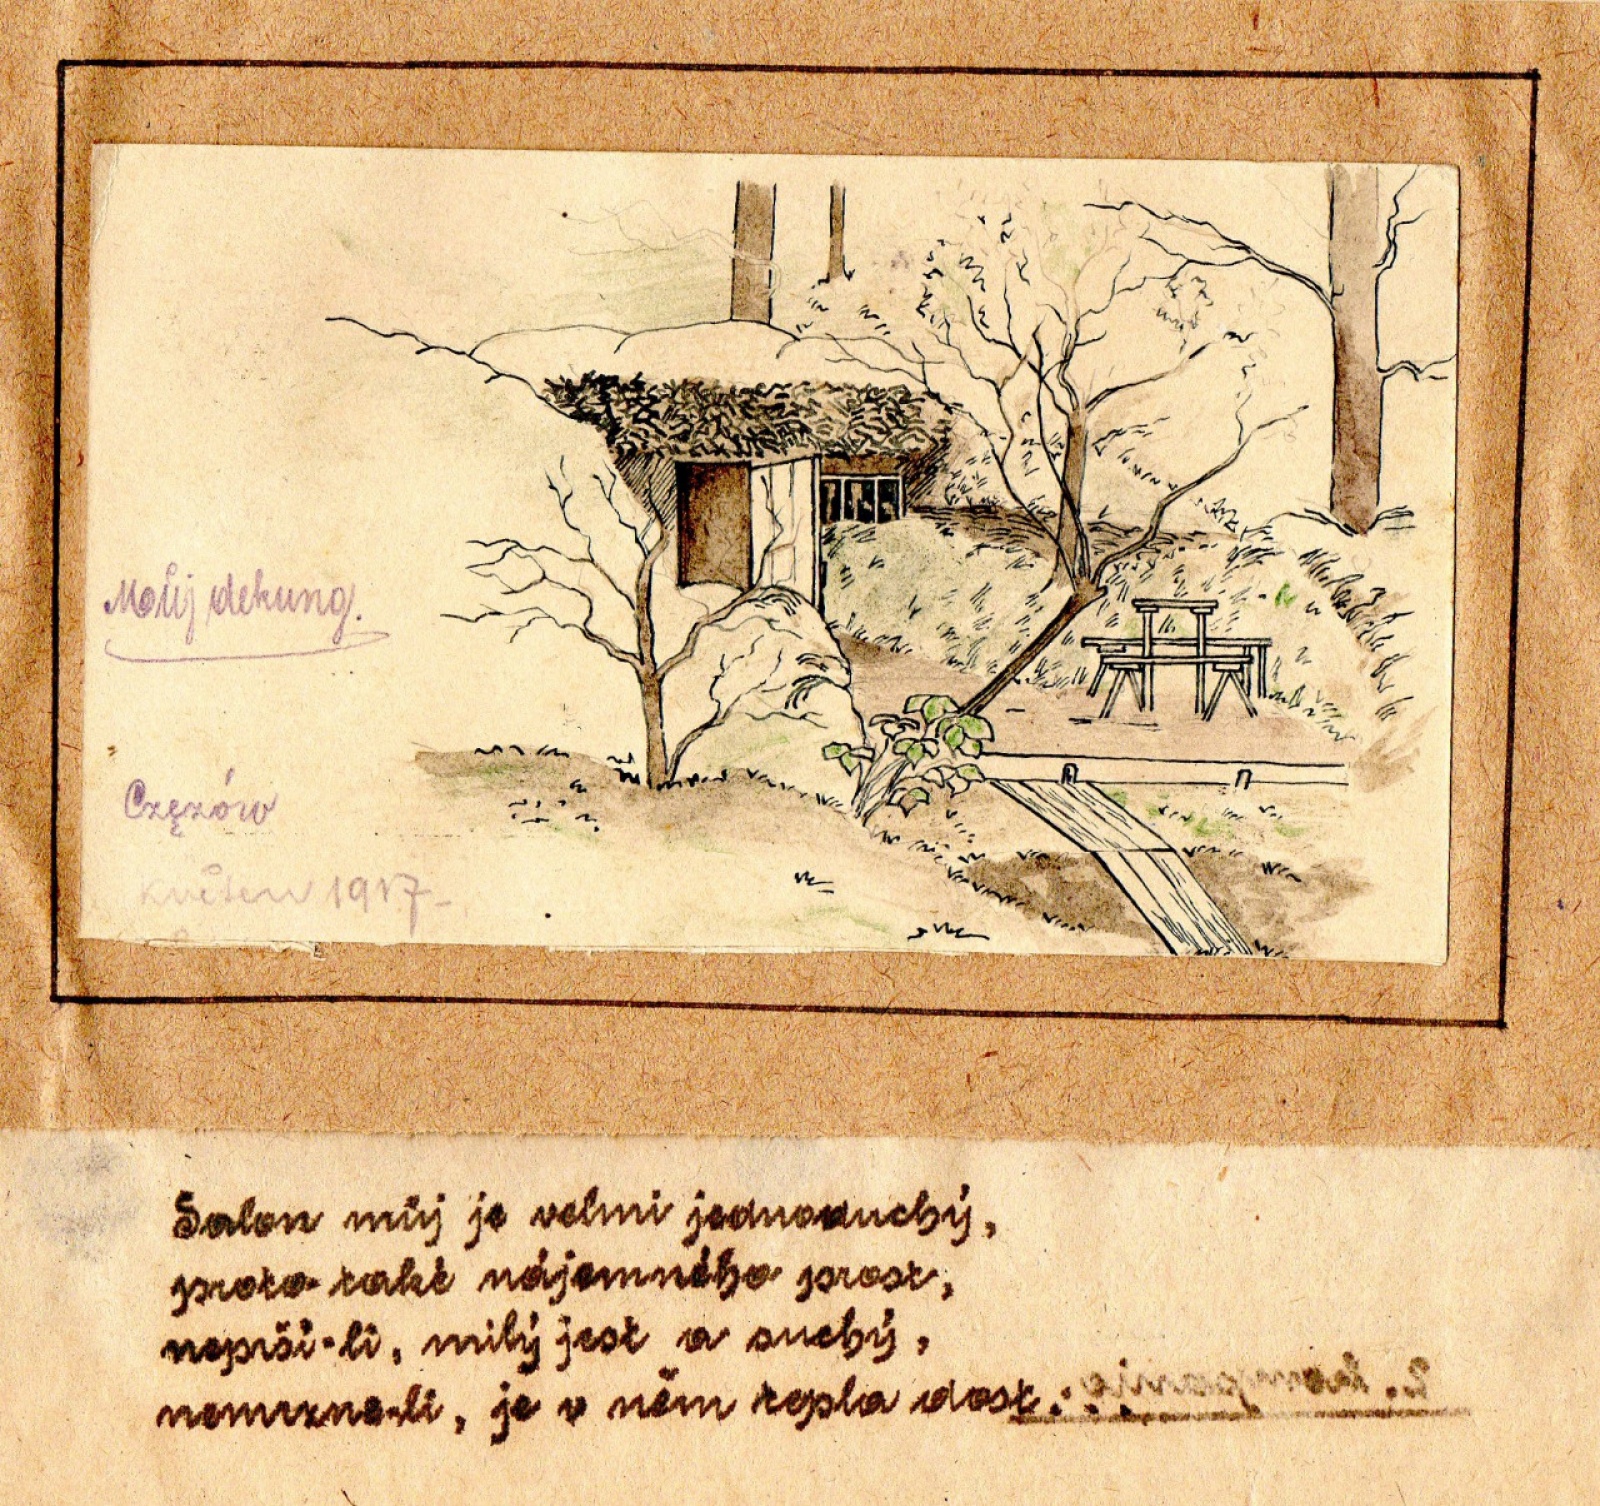 Můj dekung.
Częzów
Květen 1917
Salon můj je velmi jednoduchý,
proto také nájemného prost,
neprší-li, milý jest a suchý,
nemrzne-li, je v něm tepla dost...
2. kompanie